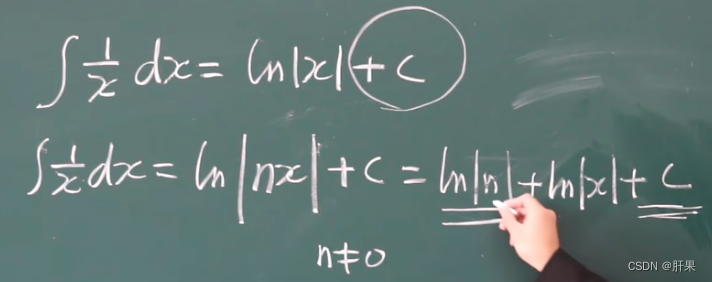 ∫ 1/x dx = ln|x| + C
∫ 1/x dx = ln|nx| + C = ln|n| + ln|x| + C
n ≠ 0
CSDN @肝果